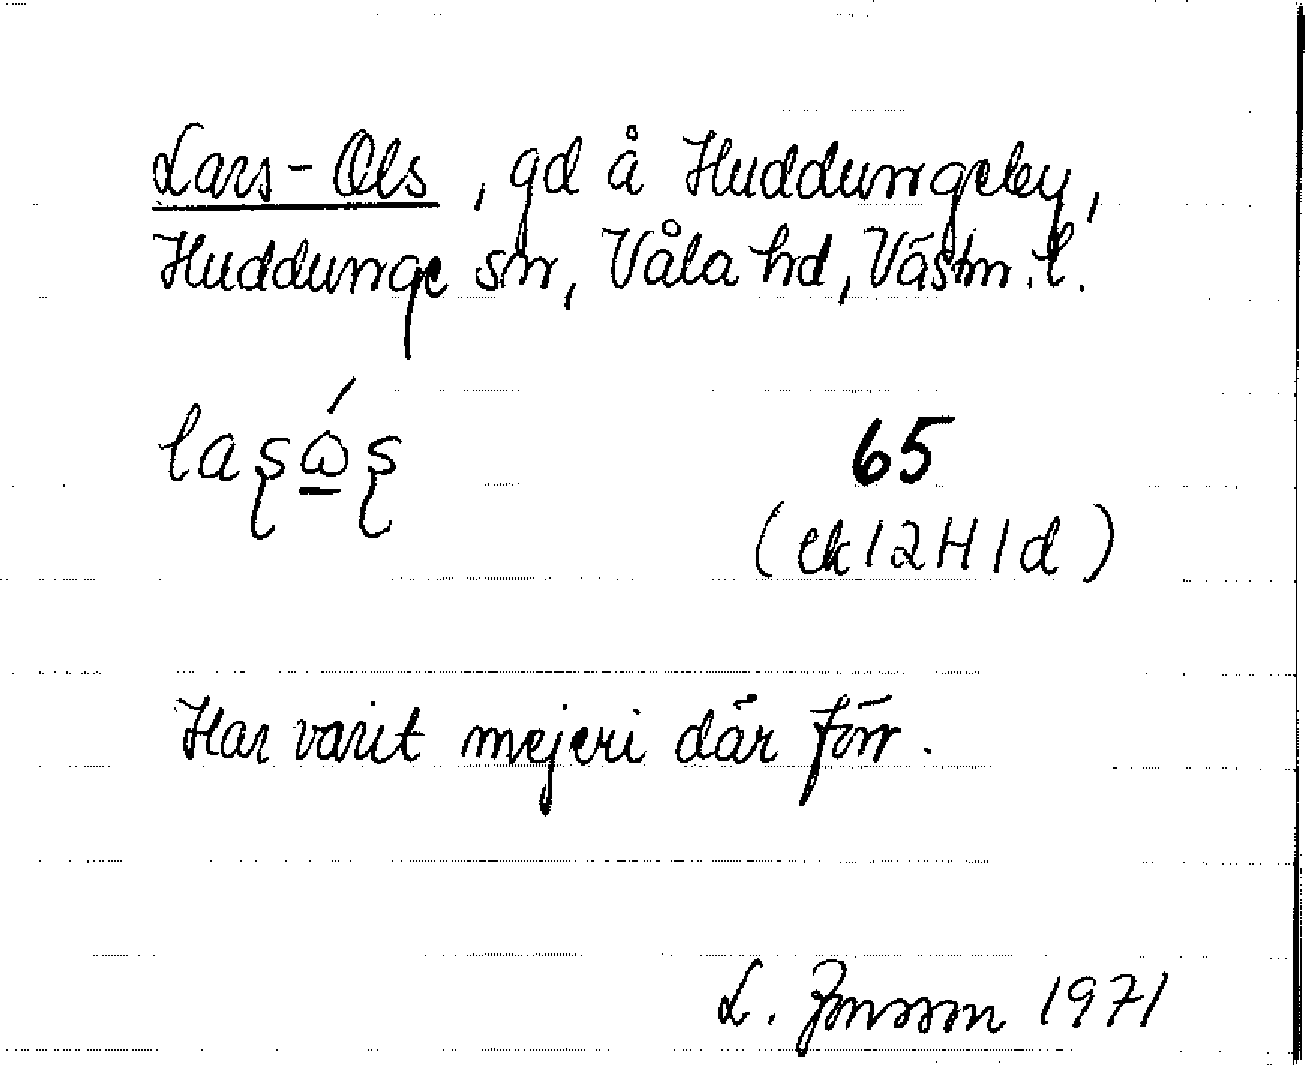 Lars-Ols, gd å Huddungeby,
Huddunge sn, Våla hd, Västm. l.
65
(ek 12H1d)
Har varit mejeri där förr.
L. Jonsson 1971